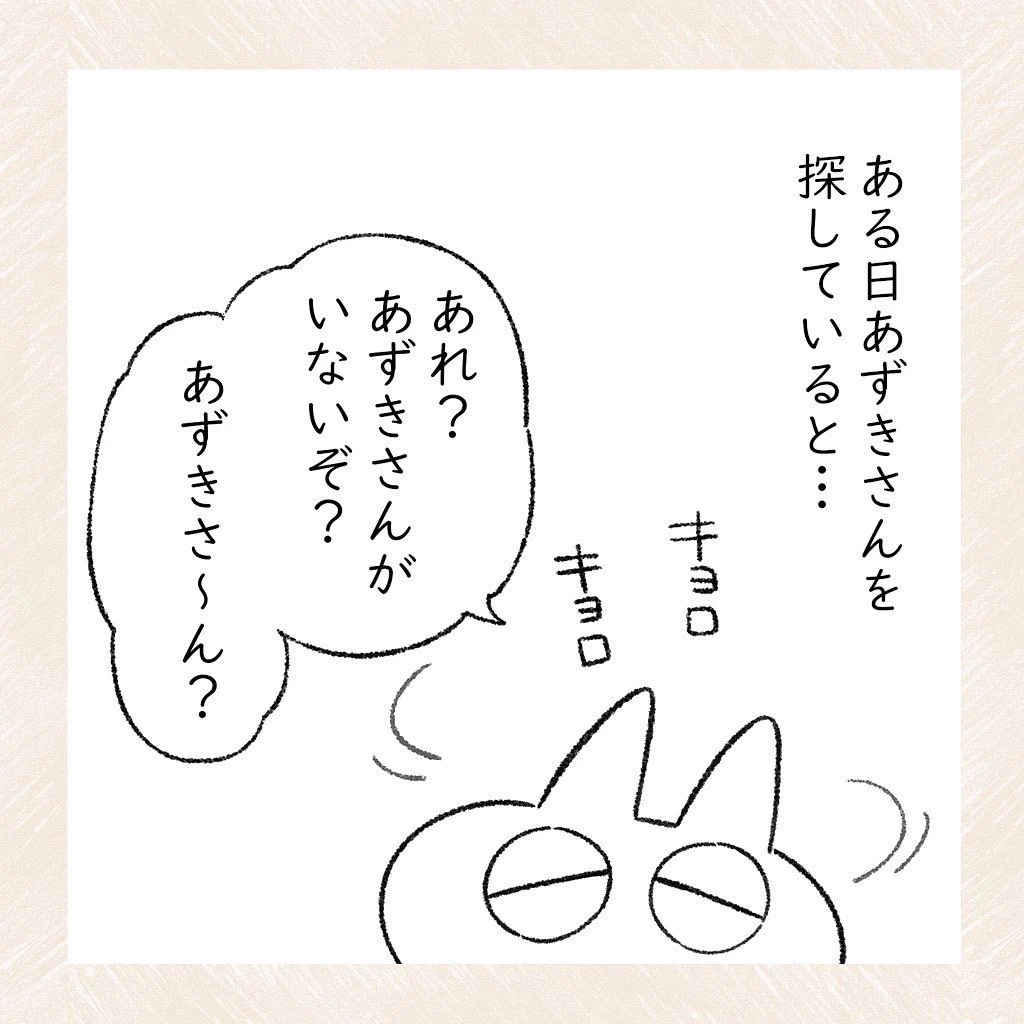 ある日あずきさんを
探していると…
キョロ
キョロ
あれ？
あずきさんが
いないぞ？
あずきさ〜ん？